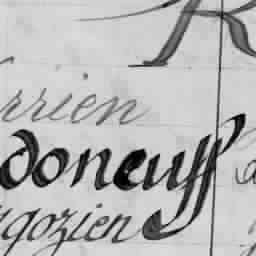 R
rrien
doncuff
gozien